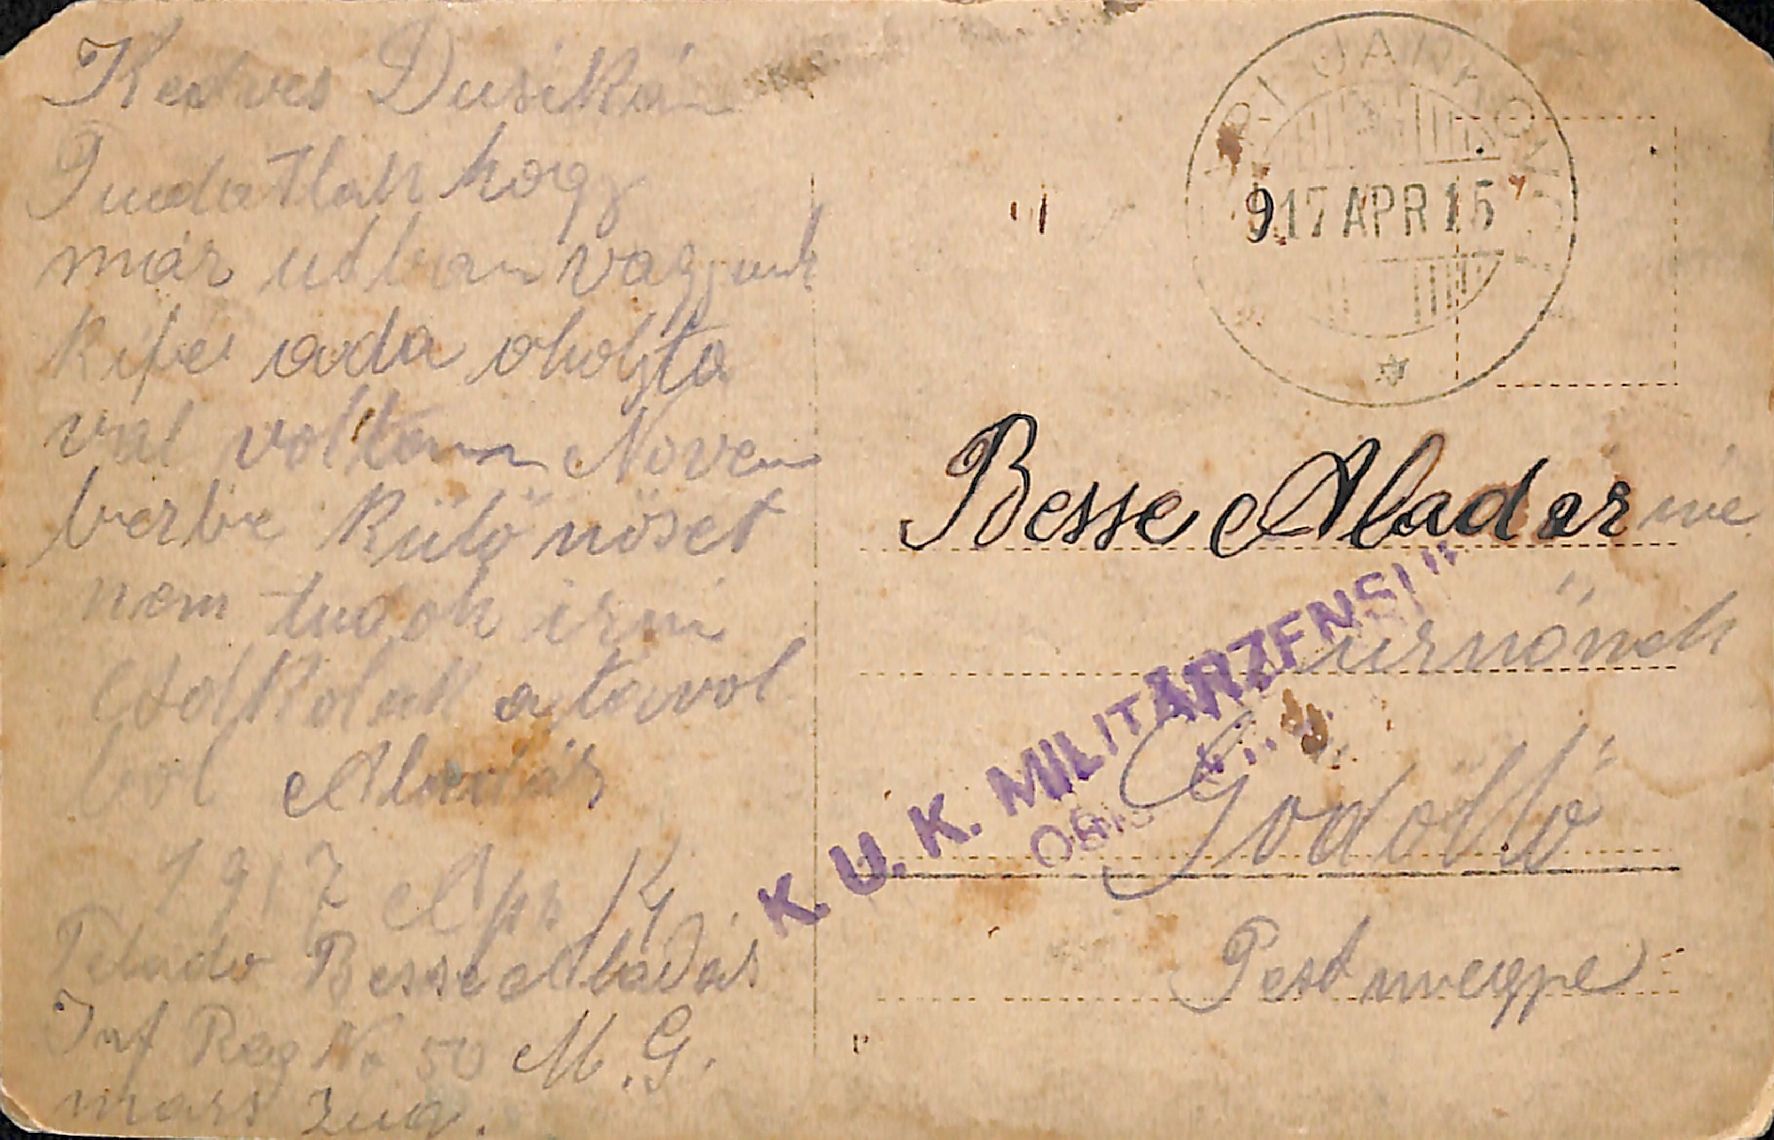 Kedves Dusikám
Tudatlak hogy
már udban vagyunk
kifel oda oholyta
val voltam Novem
berbe Külö nöset
nem tudok irni
Csókolak a távol
bol Aladár
1917 Apr 14
Felado Besse Aladár
Inf Reg No 50 M. G.
mars Zug.
917 APR 15
Besse Aladár né
urnönek
Gödöllő
Pest megye
K. U. K. MILITÄRZENSUR